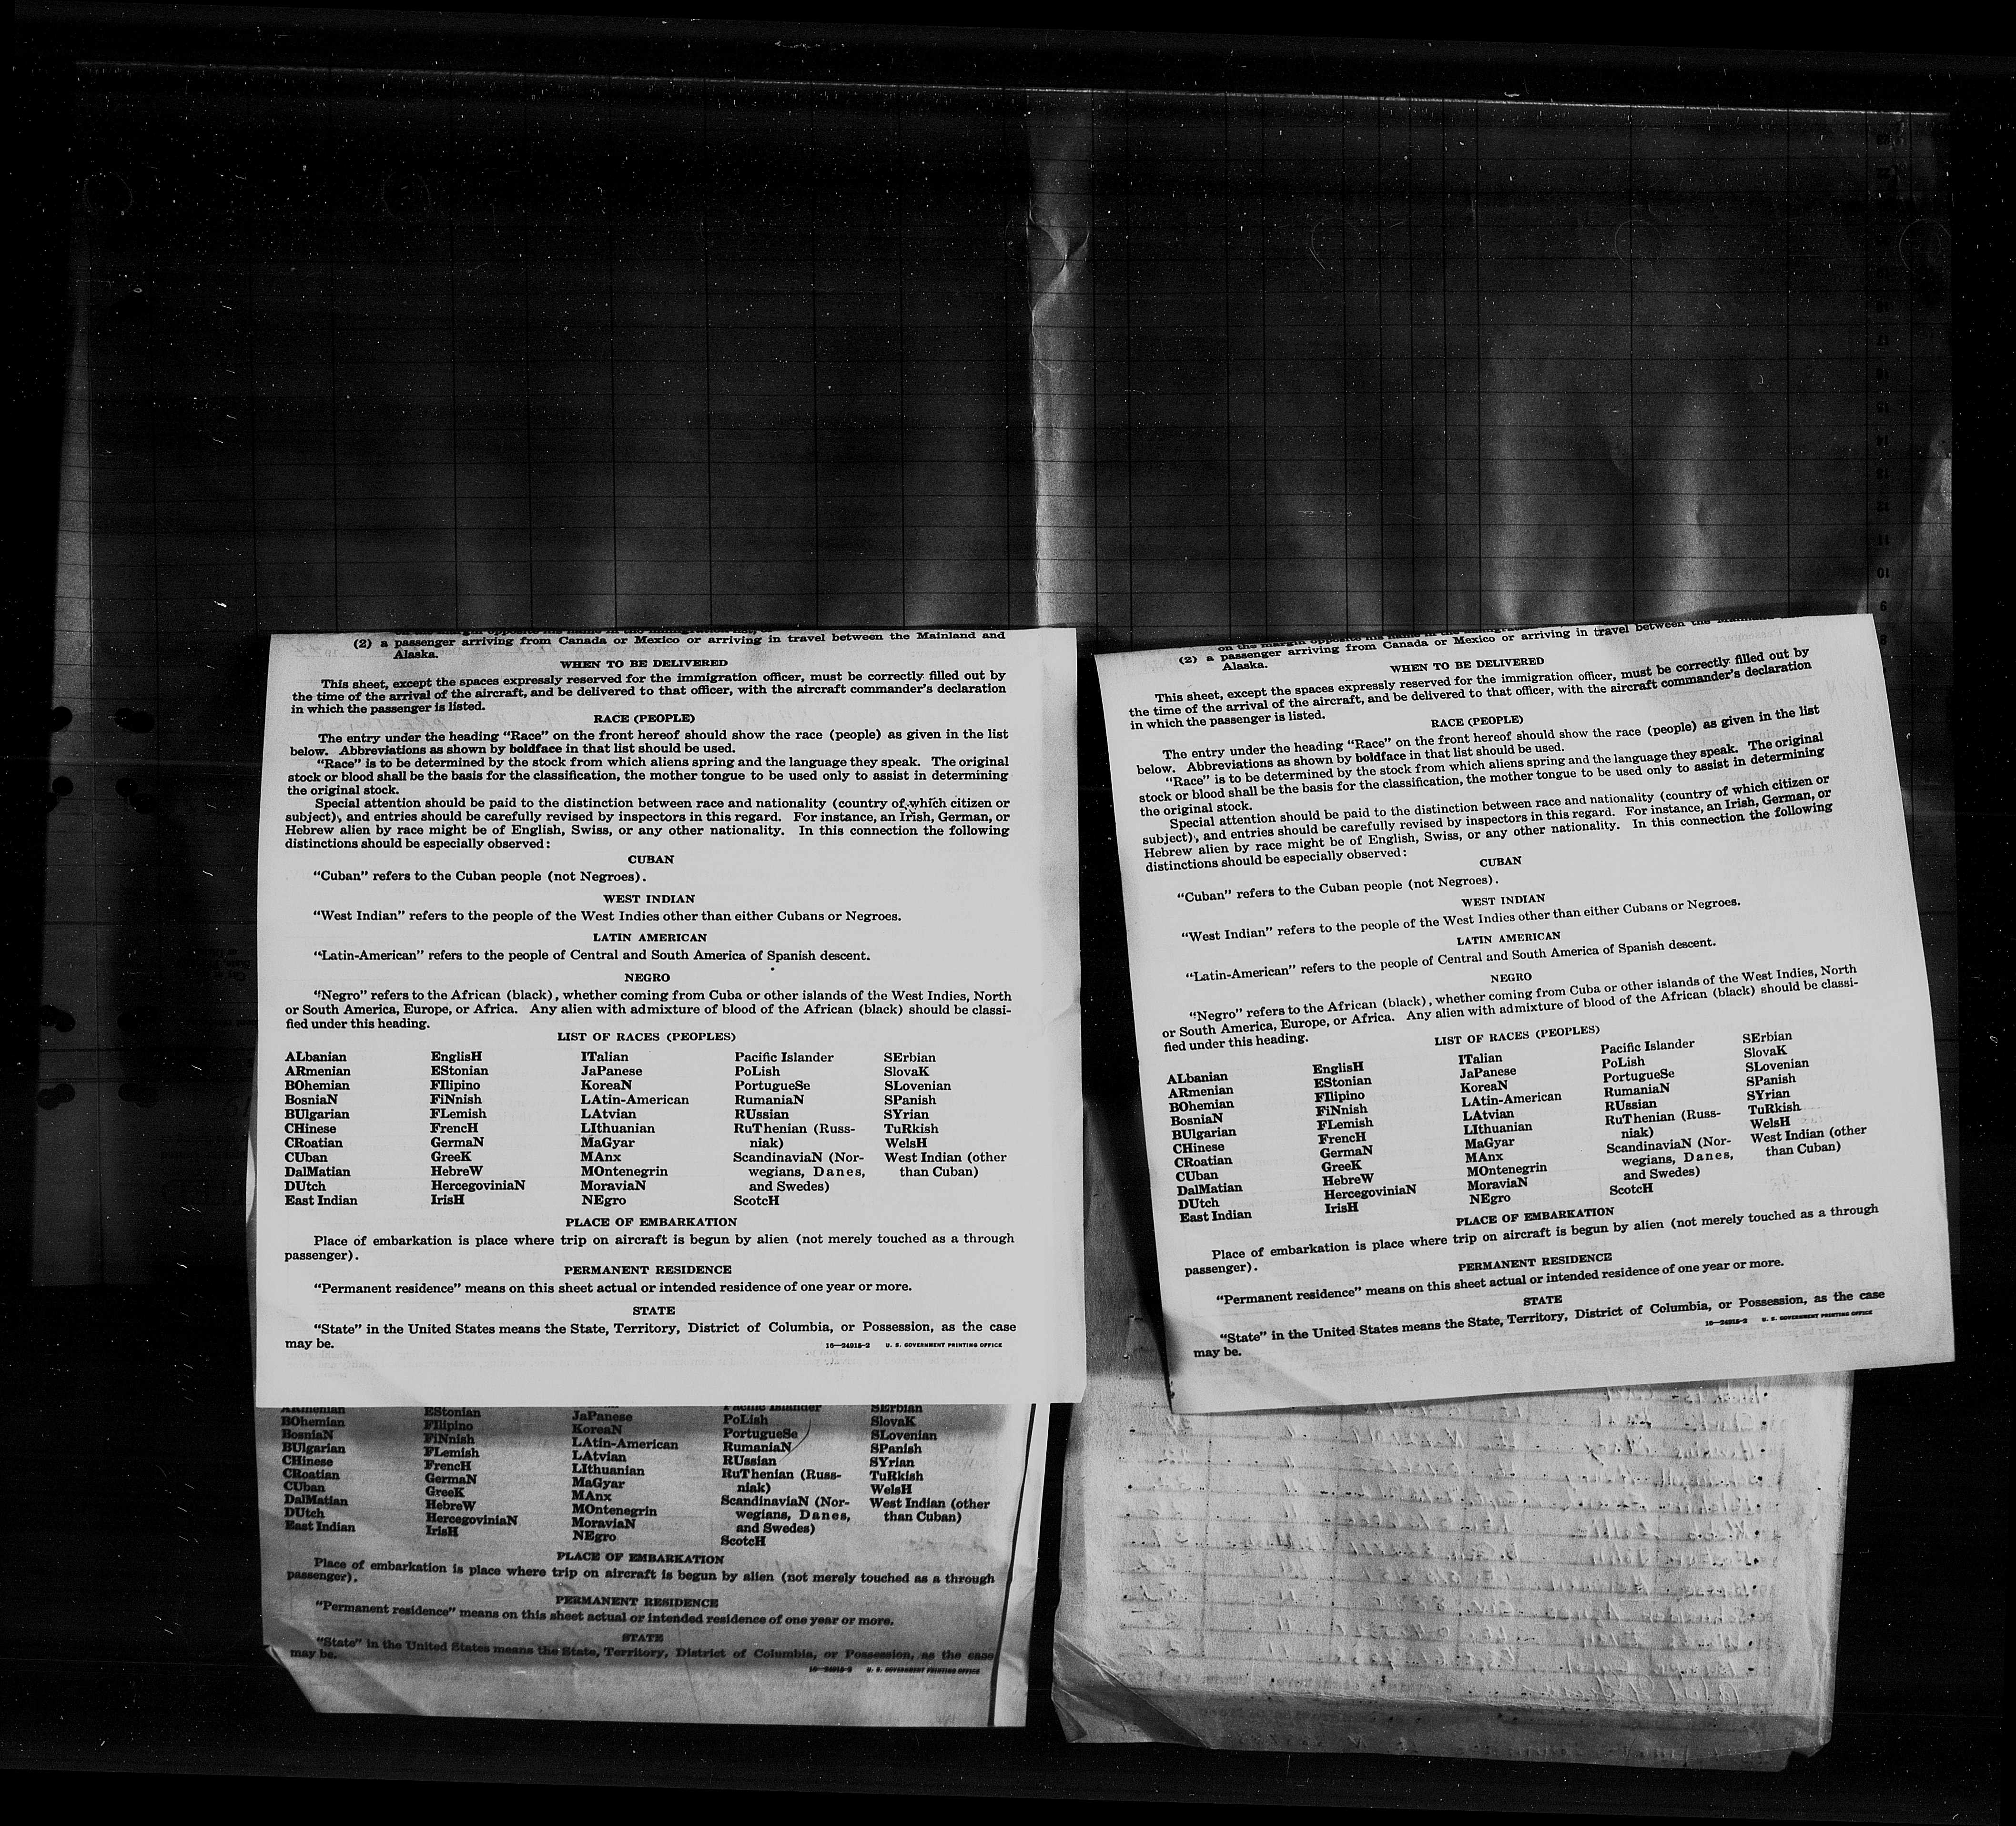 (2) a passenger arriving from Canada or Mexico or arriving in travel between the Mainland and
Alaska.
WHEN TO BE DELIVERED
This sheet, except the spaces expressly reserved for the immigration officer, must be correctly filled out by
the time of the arrival of the aircraft, and be delivered to that officer, with the aircraft commander's declaration
in which the passenger is listed.
RACE (PEOPLE)
The entry under the heading “Race” on the front hereof should show the race (people) as given in the list
below. Abbreviations as shown by boldface in that list should be used.
“Race” is to be determined by the stock from which aliens spring and the language they speak. The original
stock or blood shall be the basis for the classification, the mother tongue to be used only to assist in determining
the original stock.
Special attention should be paid to the distinction between race and nationality (country of which citizen or
subject), and entries should be carefully revised by inspectors in this regard. For instance, an Irish, German, or
Hebrew alien by race might be of English, Swiss, or any other nationality. In this connection the following
distinctions should be especially observed:
CUBAN
“Cuban” refers to the Cuban people (not Negroes).
WEST INDIAN
“West Indian” refers to the people of the West Indies other than either Cubans or Negroes.
LATIN AMERICAN
“Latin-American” refers to the people of Central and South America of Spanish descent.
NEGRO
“Negro” refers to the African (black), whether coming from Cuba or other islands of the West Indies, North
or South America, Europe, or Africa. Any alien with admixture of blood of the African (black) should be classi-
fied under this heading.
LIST OF RACES (PEOPLES)
ALbanian EnglisH ITalian Pacific Islander SErbian
ARmenian EStonian JaPanese PoLish SlovaK
BOhemian FIlipino KoreaN PortugueSe SLovenian
BosniaN FiNnish LAtin-American RumaniaN SPanish
BUlgarian FLemish LAtvian RUssian SYrian
CHinese FrencH LIthuanian RuThenian (Russ- TuRkish
CRoatian GermaN MaGyar niak) WelsH
CUban GreeK MAnx ScandinaviaN (Nor- West Indian (other
DalMatian HebreW MOntenegrin wegians, Danes, than Cuban)
DUtch HercegoviniaN MoraviaN and Swedes)
East Indian IrisH NEgro ScotcH
PLACE OF EMBARKATION
Place of embarkation is place where trip on aircraft is begun by alien (not merely touched as a through
passenger).
PERMANENT RESIDENCE
“Permanent residence” means on this sheet actual or intended residence of one year or more.
STATE
“State” in the United States means the State, Territory, District of Columbia, or Possession, as the case
may be.
16—24915-2 U. S. GOVERNMENT PRINTING OFFICE
ARmenian EStonian JaPanese Pacific Islander SErbian
BOhemian FIlipino KoreaN PoLish SlovaK
BosniaN FiNnish LAtin-American PortugueSe SLovenian
BUlgarian FLemish LAtvian RumaniaN SPanish
CHinese FrencH LIthuanian RUssian SYrian
CRoatian GermaN MaGyar RuThenian (Russ- TuRkish
CUban GreeK MAnx niak) WelsH
DalMatian HebreW MOntenegrin ScandinaviaN (Nor- West Indian (other
DUtch HercegoviniaN MoraviaN wegians, Danes, than Cuban)
East Indian IrisH NEgro and Swedes)
ScotcH
PLACE OF EMBARKATION
Place of embarkation is place where trip on aircraft is begun by alien (not merely touched as a through
passenger).
PERMANENT RESIDENCE
“Permanent residence” means on this sheet actual or intended residence of one year or more.
STATE
“State” in the United States means the State, Territory, District of Columbia, or Possession, as the case
may be.
16—24915-2 U. S. GOVERNMENT PRINTING OFFICE
on the margin opposite his name in the
(2) a passenger arriving from Canada or Mexico or arriving in travel between the Mainland
Alaska.
WHEN TO BE DELIVERED
This sheet, except the spaces expressly reserved for the immigration officer, must be correctly filled out by
the time of the arrival of the aircraft, and be delivered to that officer, with the aircraft commander's declaration
in which the passenger is listed.
RACE (PEOPLE)
The entry under the heading “Race” on the front hereof should show the race (people) as given in the list
below. Abbreviations as shown by boldface in that list should be used.
“Race” is to be determined by the stock from which aliens spring and the language they speak. The original
stock or blood shall be the basis for the classification, the mother tongue to be used only to assist in determining
the original stock.
Special attention should be paid to the distinction between race and nationality (country of which citizen or
subject), and entries should be carefully revised by inspectors in this regard. For instance, an Irish, German, or
Hebrew alien by race might be of English, Swiss, or any other nationality. In this connection the following
distinctions should be especially observed:
CUBAN
“Cuban” refers to the Cuban people (not Negroes).
WEST INDIAN
“West Indian” refers to the people of the West Indies other than either Cubans or Negroes.
LATIN AMERICAN
“Latin-American” refers to the people of Central and South America of Spanish descent.
NEGRO
“Negro” refers to the African (black), whether coming from Cuba or other islands of the West Indies, North
or South America, Europe, or Africa. Any alien with admixture of blood of the African (black) should be classi-
fied under this heading.
LIST OF RACES (PEOPLES)
ALbanian EnglisH ITalian Pacific Islander SErbian
ARmenian EStonian JaPanese PoLish SlovaK
BOhemian FIlipino KoreaN PortugueSe SLovenian
BosniaN FiNnish LAtin-American RumaniaN SPanish
BUlgarian FLemish LAtvian RUssian SYrian
CHinese FrencH LIthuanian RuThenian (Russ- TuRkish
CRoatian GermaN MaGyar niak) WelsH
CUban GreeK MAnx ScandinaviaN (Nor- West Indian (other
DalMatian HebreW MOntenegrin wegians, Danes, than Cuban)
DUtch HercegoviniaN MoraviaN and Swedes)
East Indian IrisH NEgro ScotcH
PLACE OF EMBARKATION
Place of embarkation is place where trip on aircraft is begun by alien (not merely touched as a through
passenger).
PERMANENT RESIDENCE
“Permanent residence” means on this sheet actual or intended residence of one year or more.
STATE
“State” in the United States means the State, Territory, District of Columbia, or Possession, as the case
may be.
16—24915-2 U. S. GOVERNMENT PRINTING OFFICE